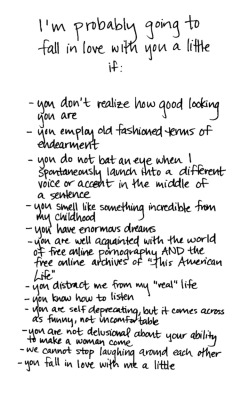 I'm probably going to
fall in love with you a little
if:
- you don't realize how good looking
you are
- you employ old fashioned terms of
endearment
- you do not bat an eye when I
spontaneously launch into a different
voice or accent in the middle of
a sentence
- you smell like something incredible from
my childhood
- you have enormous dreams
- you are well acquainted with the world
of free online pornography AND the
free online archives of "This American
Life"
- you distract me from my "real" life
- you know how to listen
- you are self deprecating, but it comes across
as funny, not uncomfortable
- you are not delusional about your ability
to make a woman come
- we cannot stop laughing around each other
- you fall in love with me a little